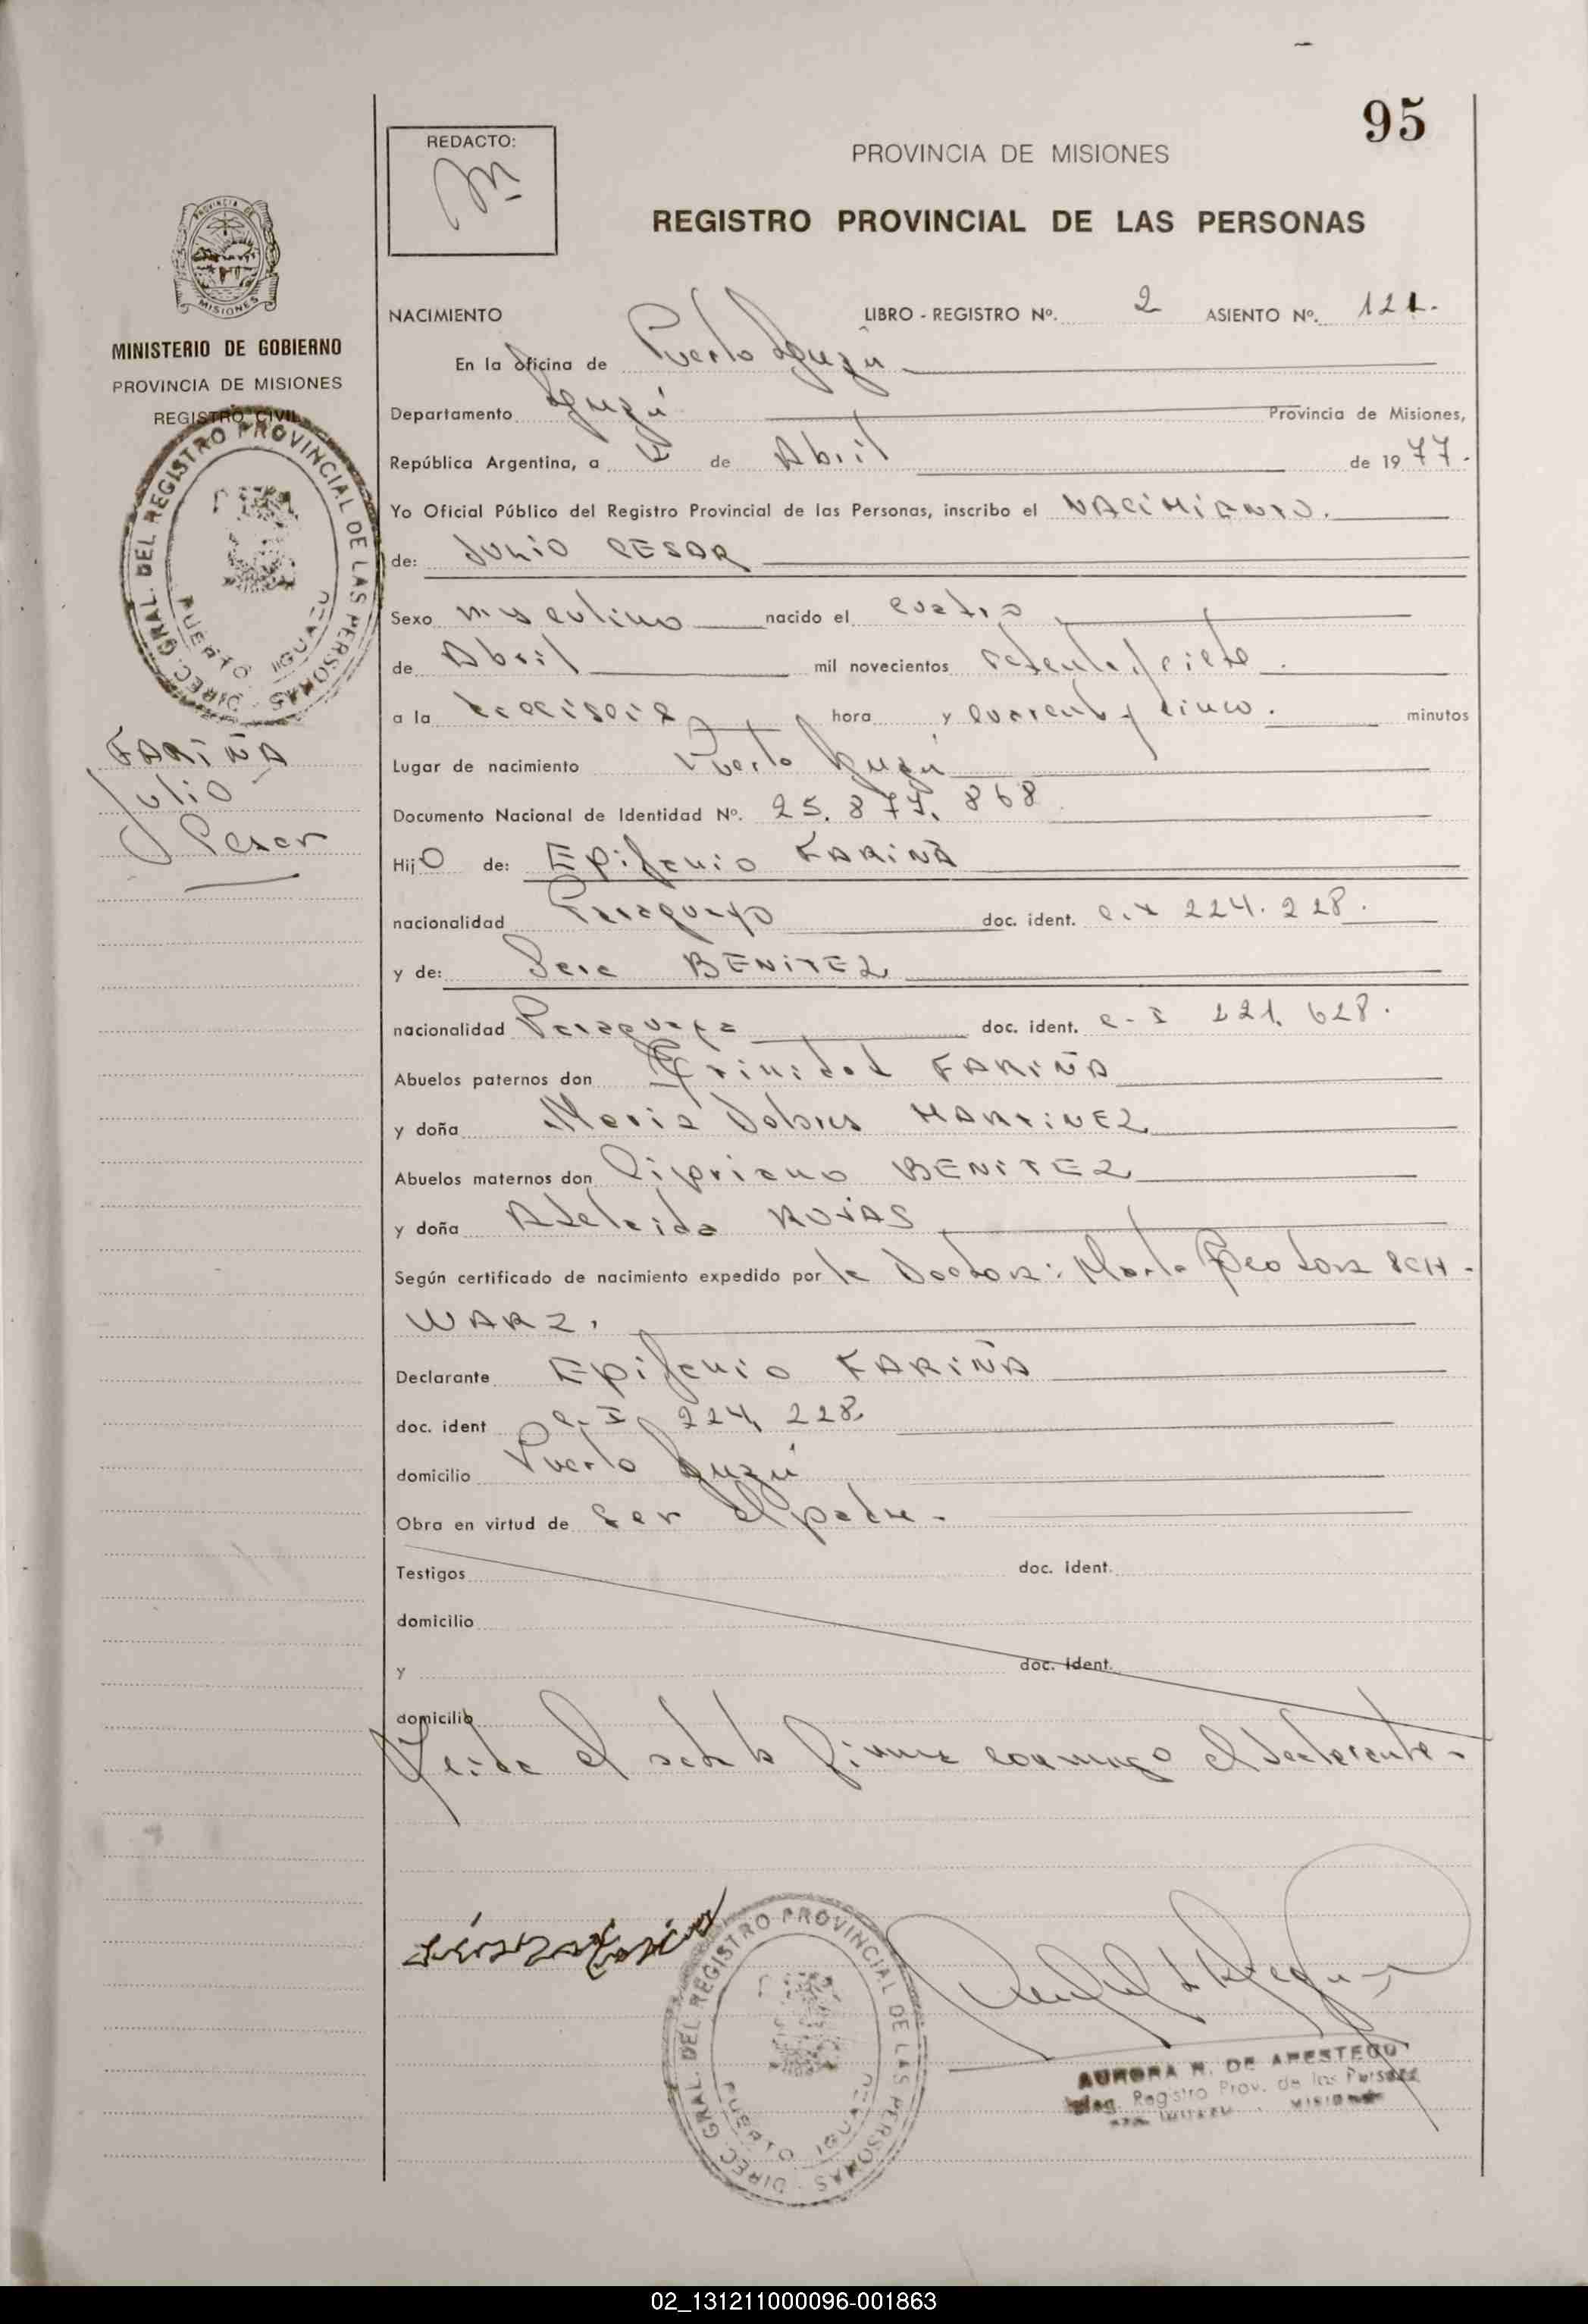 95
REDACTO:
PROVINCIA DE MISIONES
REGISTRO PROVINCIAL DE LAS PERSONAS
PROVINCIA DE MISIONES
MINISTERIO DE GOBIERNO
PROVINCIA DE MISIONES
REGISTRO CIVIL
DIREC. GRAL. DEL REGISTRO PROVINCIAL DE LAS PERSONAS
PUERTO IGUAZU
FARIÑA
Julio
Cesar
NACIMIENTO LIBRO - REGISTRO Nº. 2 ASIENTO Nº. 121.
En la oficina de Puerto Iguazú
Departamento Iguazú Provincia de Misiones,
República Argentina, a de Abril de 1977.
Yo Oficial Público del Registro Provincial de las Personas, inscribo el NACIMIENTO.
de: JULIO CESAR
Sexo masculino nacido el cuatro
de Abril mil novecientos setenta y siete.
a la dieciseis hora y cuarenta y cinco. minutos
Lugar de nacimiento Puerto Iguazú
Documento Nacional de Identidad Nº. 25.877.868
Hijo de: Epifanio FARIÑA
nacionalidad Paraguayo doc. ident. C.I 224.228.
y de: Sara BENITEZ
nacionalidad Paraguaya doc. ident. C-I 221.628.
Abuelos paternos don Trinidad FARIÑA
y doña Maria Dolores MARTINEZ
Abuelos maternos don Cipriano BENITEZ
y doña Adelaida ROJAS
Según certificado de nacimiento expedido por la Doctora: Marta SCH-
WARZ.
Declarante Epifanio FARIÑA
doc. ident C.I 224.228.
domicilio Puerto Iguazú
Obra en virtud de ser el padre.
Testigos doc. ident.
domicilio
y doc. ident.
domicilio
Leida el acta la firma conmigo el declarante.
DIREC. GRAL. DEL REGISTRO PROVINCIAL DE LAS PERSONAS
PUERTO IGUAZU
AURORA R. DE APESTEGUI
Registro Prov. de las Personas
MISIONES
02_131211000096-001863